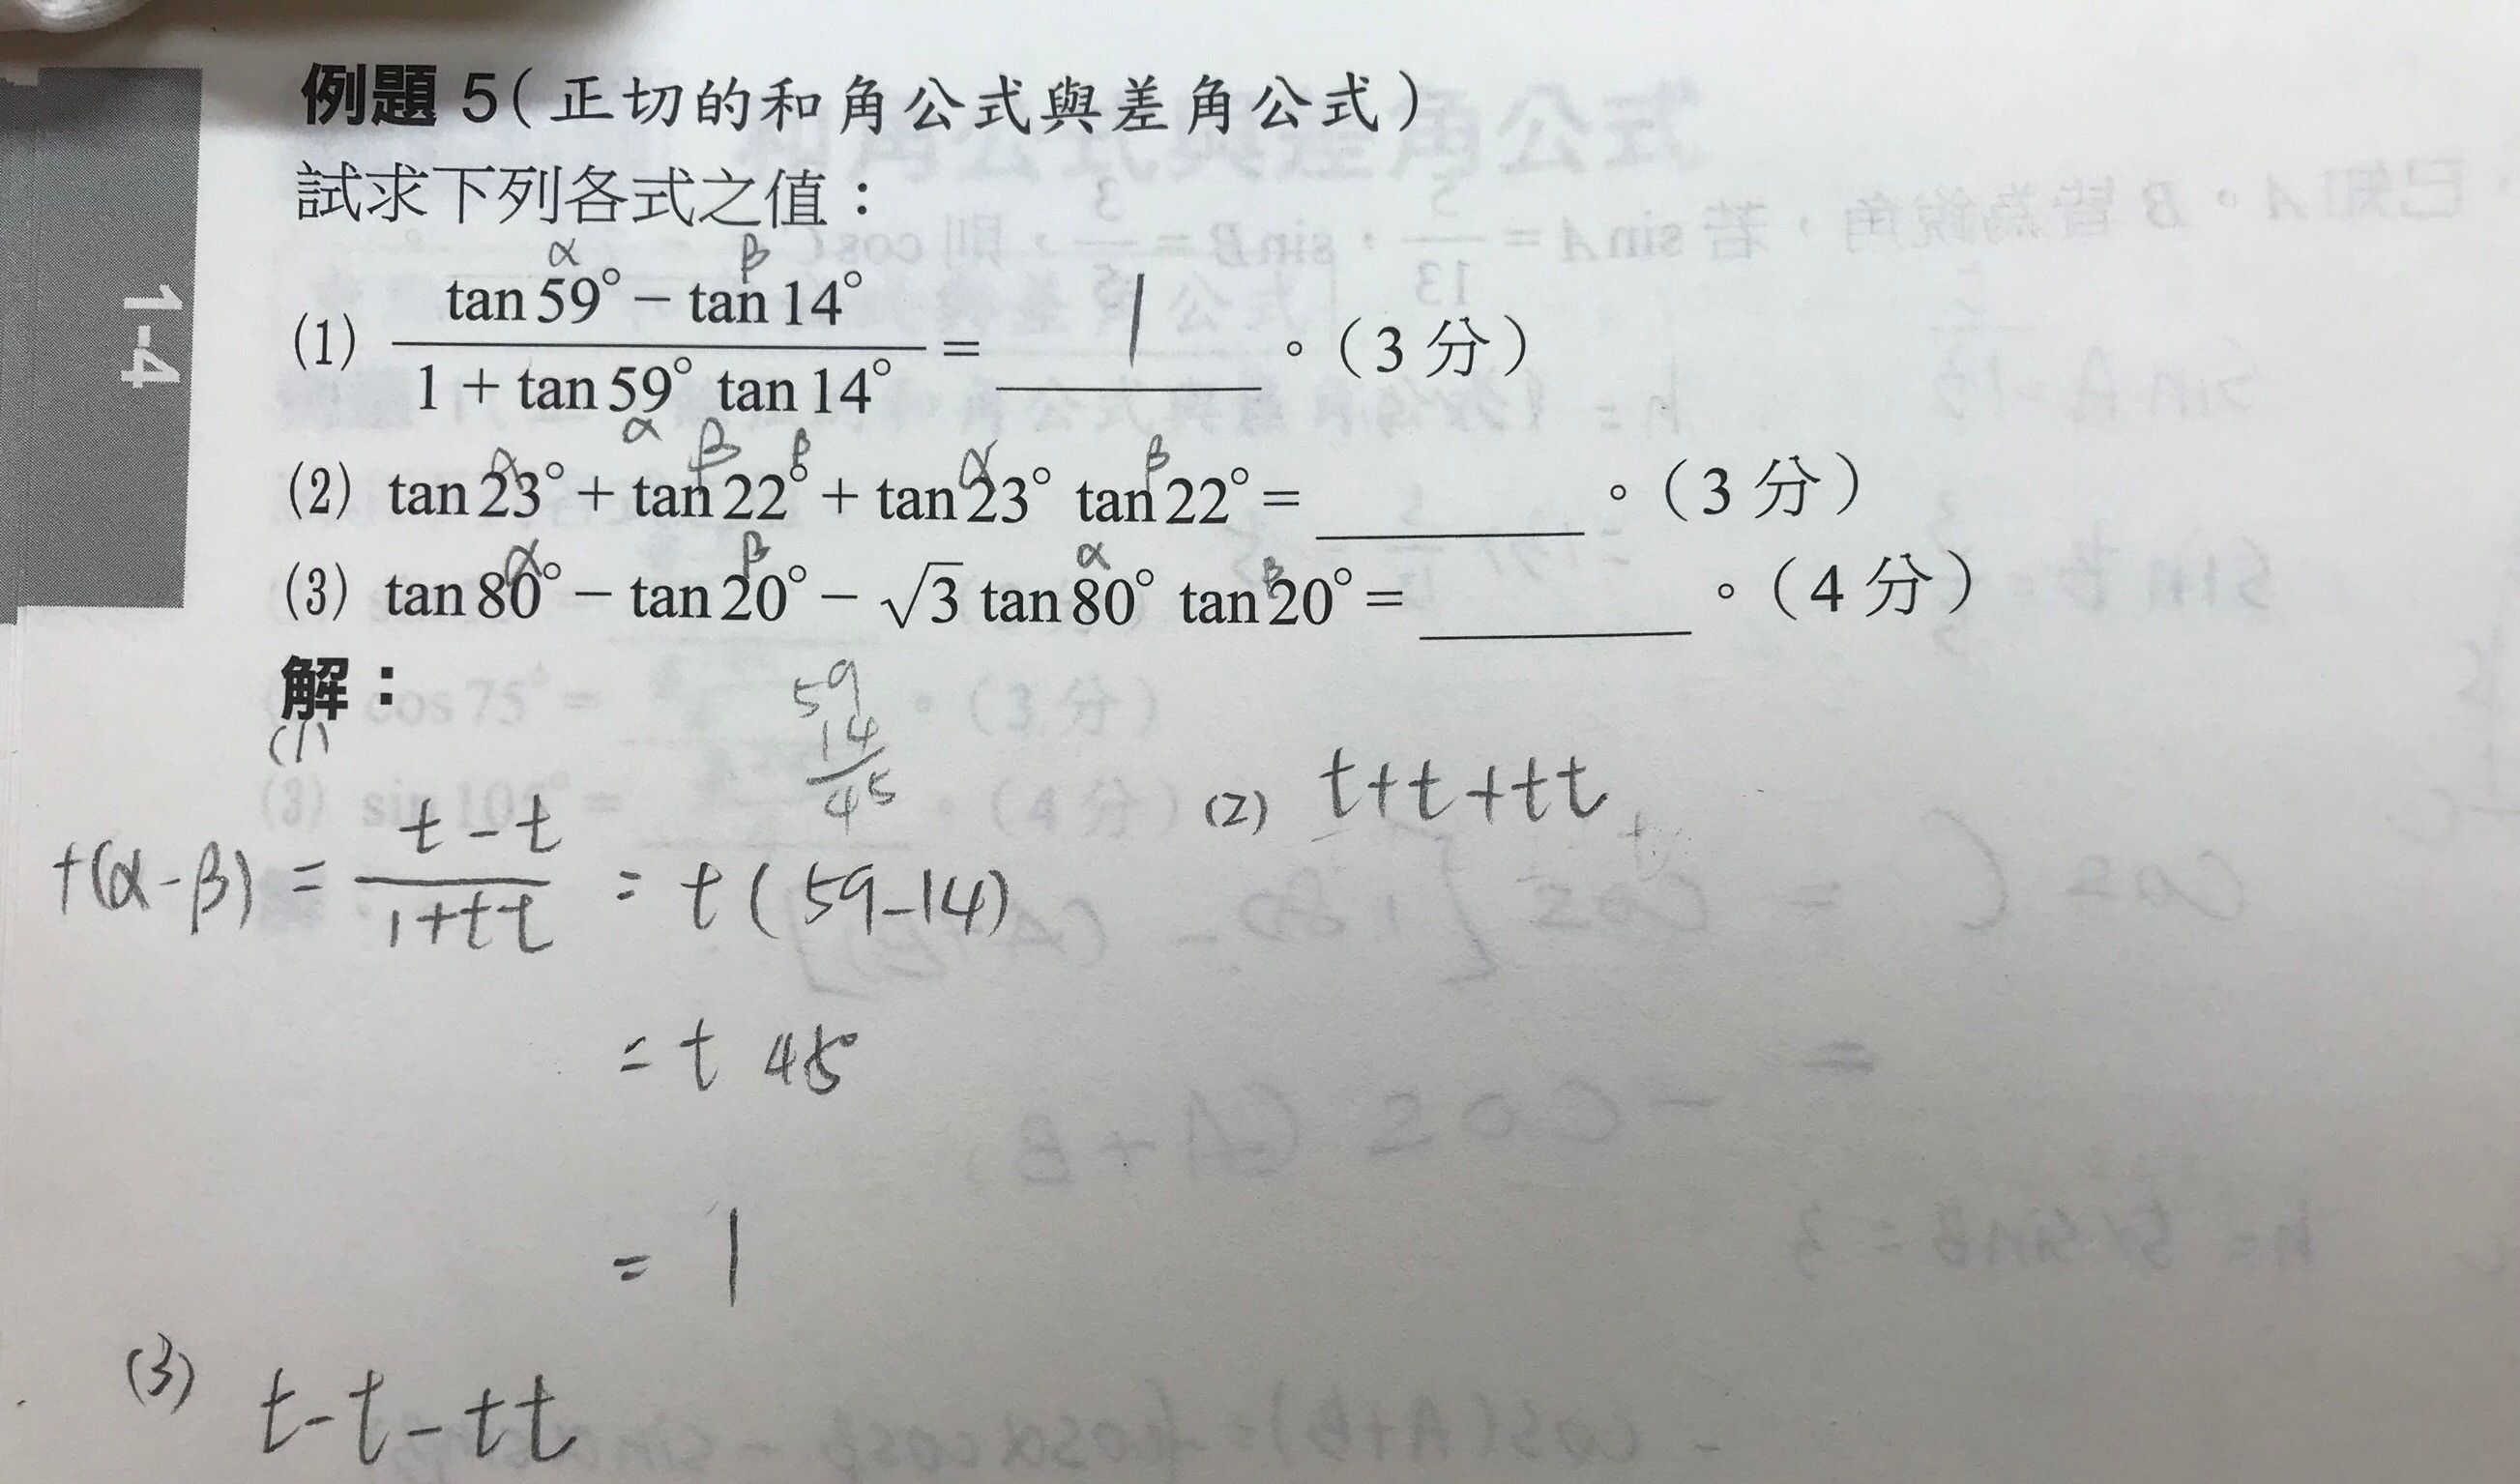 例題 5(正切的和角公式與差角公式)
試求下列各式之值:
α β
(1) (tan 59° − tan 14°) / (1 + tan 59° tan 14°) = 1 。(3 分)
α β
α β β α β
(2) tan 23° + tan 22° + tan 23° tan 22° = ______ 。(3 分)
α β α β
(3) tan 80° − tan 20° − √3 tan 80° tan 20° = ______ 。(4 分)
解:
1-4
(1)
59
14
45
t(α-β) = (t-t) / (1+tt) = t(59-14)
= t 45°
= 1
(2) t+t+tt
(3) t-t-tt